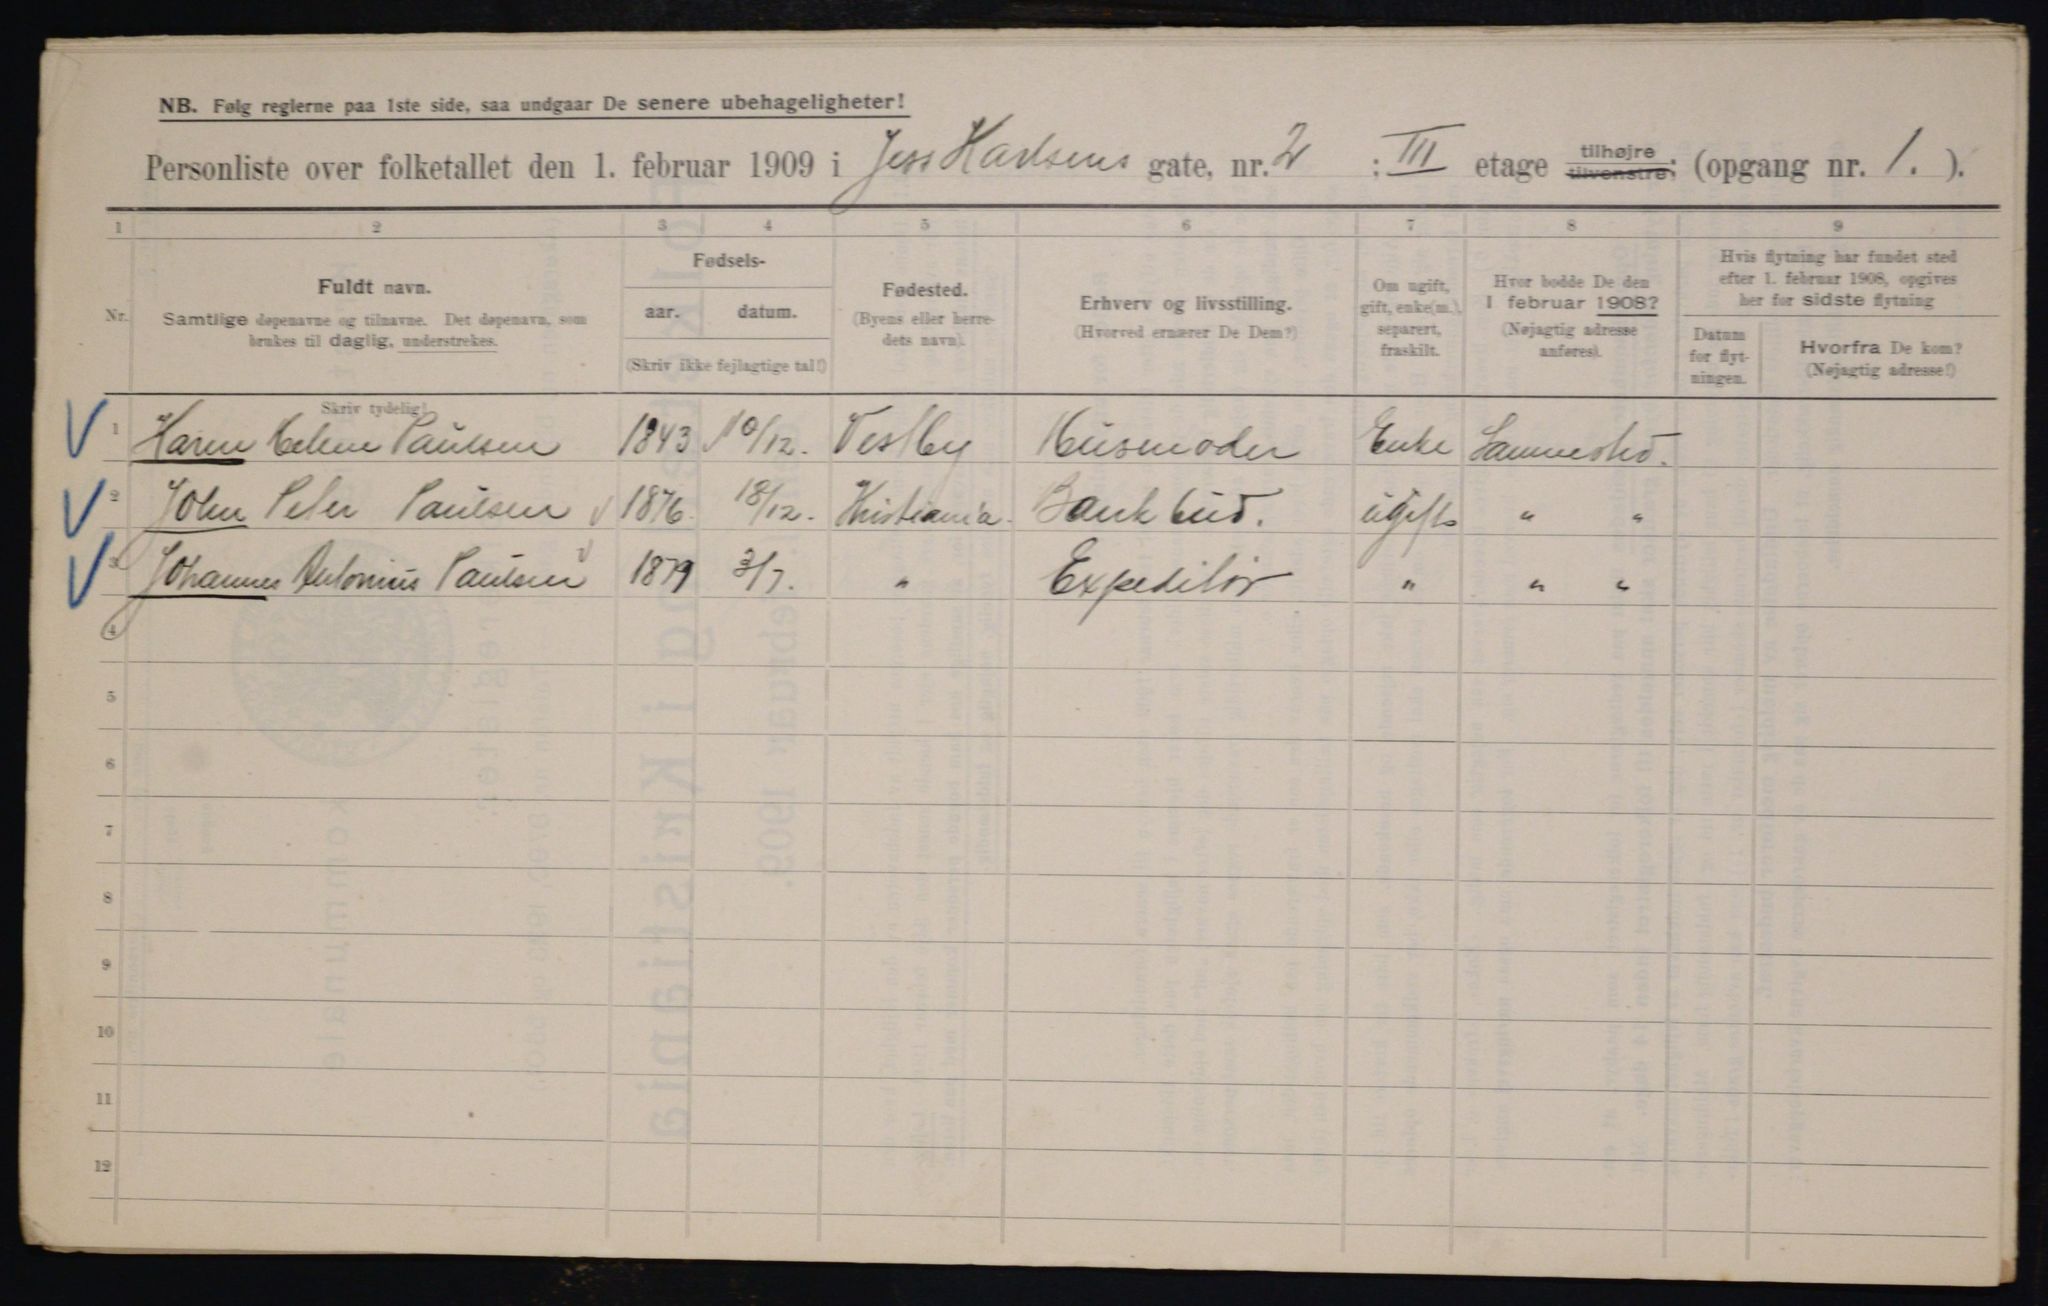 NB. Følg reglerne paa 1ste side, saa undgaar De senere ubehageligheter!
Personliste over folketallet den 1. februar 1909 i Jess Karlsens gate, nr. 2 : III etage tilhøjre tilvenstre; (opgang nr. 1. ).
1 2 3 4 5 6 7 8 9
Nr.
Fuldt navn.
Samtlige døpenavne og tilnavne. Det døpenavn, som
brukes til daglig, understrekes.
Skriv tydelig!
Fødsels-
aar. datum.
(Skriv ikke fejlagtige tal!)
Fødested.
(Byens eller herre-
dets navn).
Erhverv og livsstilling.
(Hvorved ernærer De Dem?)
Om ugift,
gift, enke(m.),
separert,
fraskilt.
Hvor bodde De den
1 februar 1908?
(Nøjagtig adresse
anføres).
Hvis flytning har fundet sted
efter 1. februar 1908, opgives
her for sidste flytning
Datum
for flyt-
ningen.
Hvorfra De kom?
(Nøjagtig adresse!)
1 Karen Helene Paulsen 1843 10/12. Vestby Husmoder Enke Sammested.
2 John Peter Paulsen 1876. 18/12. Kristiania. Bankbud. ugift " "
3 Johannes Antonius Paulsen 1879 3/7. " Expeditør " " "
4
5
6
7
8
9
10
11
12